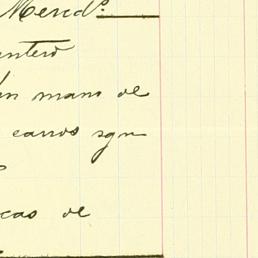 Mercd.º
entero
en mano de
carros sgn
cas de